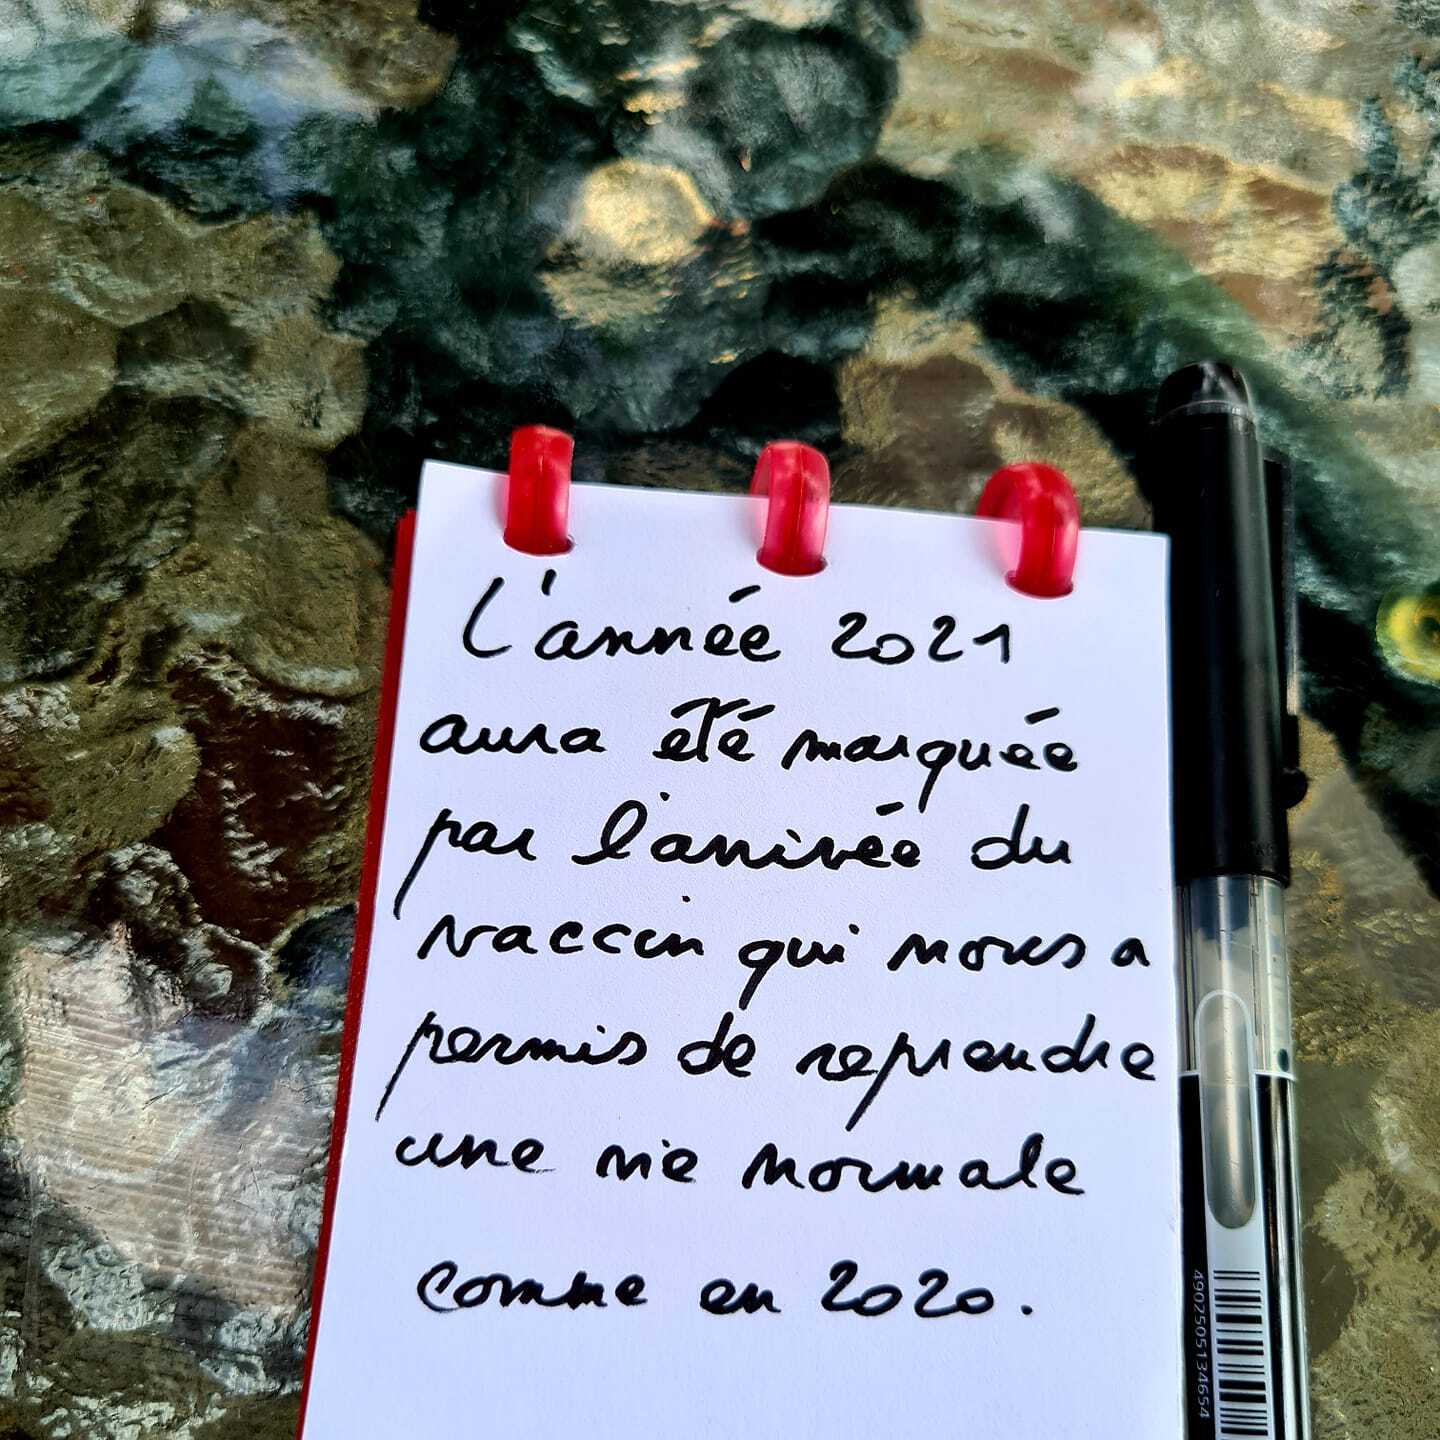 L'année 2021
aura été marquée
par l'arrivée du
vaccin qui nous a
permis de reprendre
une vie normale
comme en 2020.
4902505134654